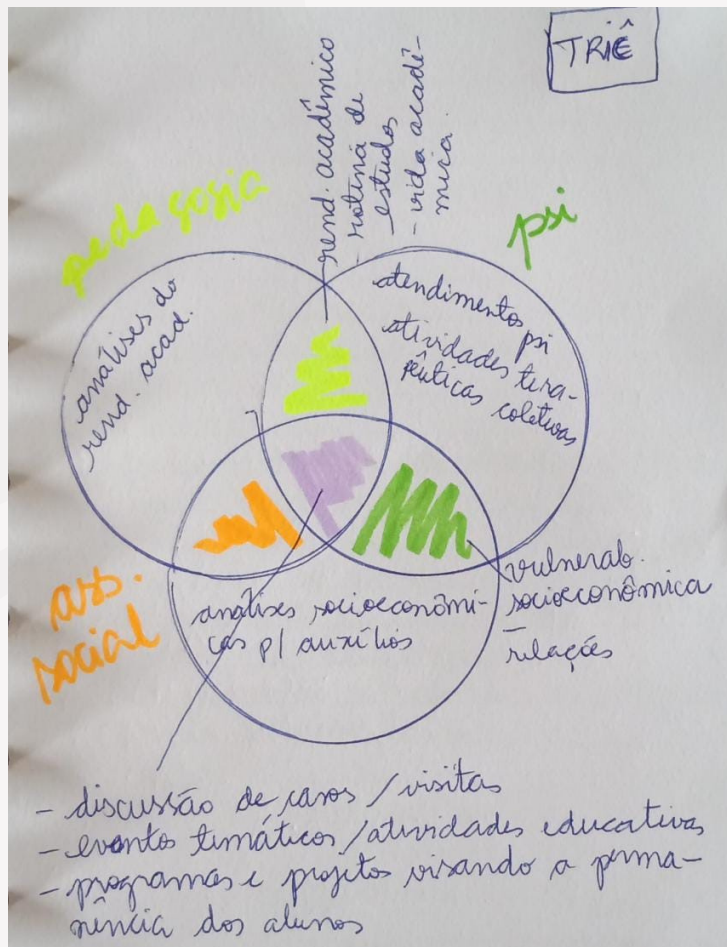 TRIÊ
rend. acadêmico
- rotina de
estudos
- vida acadê-
mica.
pedagogia
psi
análises do
rend. acad.
atendimentos psi
atividades tera-
pêuticas coletivas
ass.
social
análises socioeconômi-
cas p/ auxílios
vulnerab.
socioeconômica
- relações
- discussão de casos / visitas
- eventos temáticos / atividades educativas
- programas e projetos visando a perma-
nência dos alunos